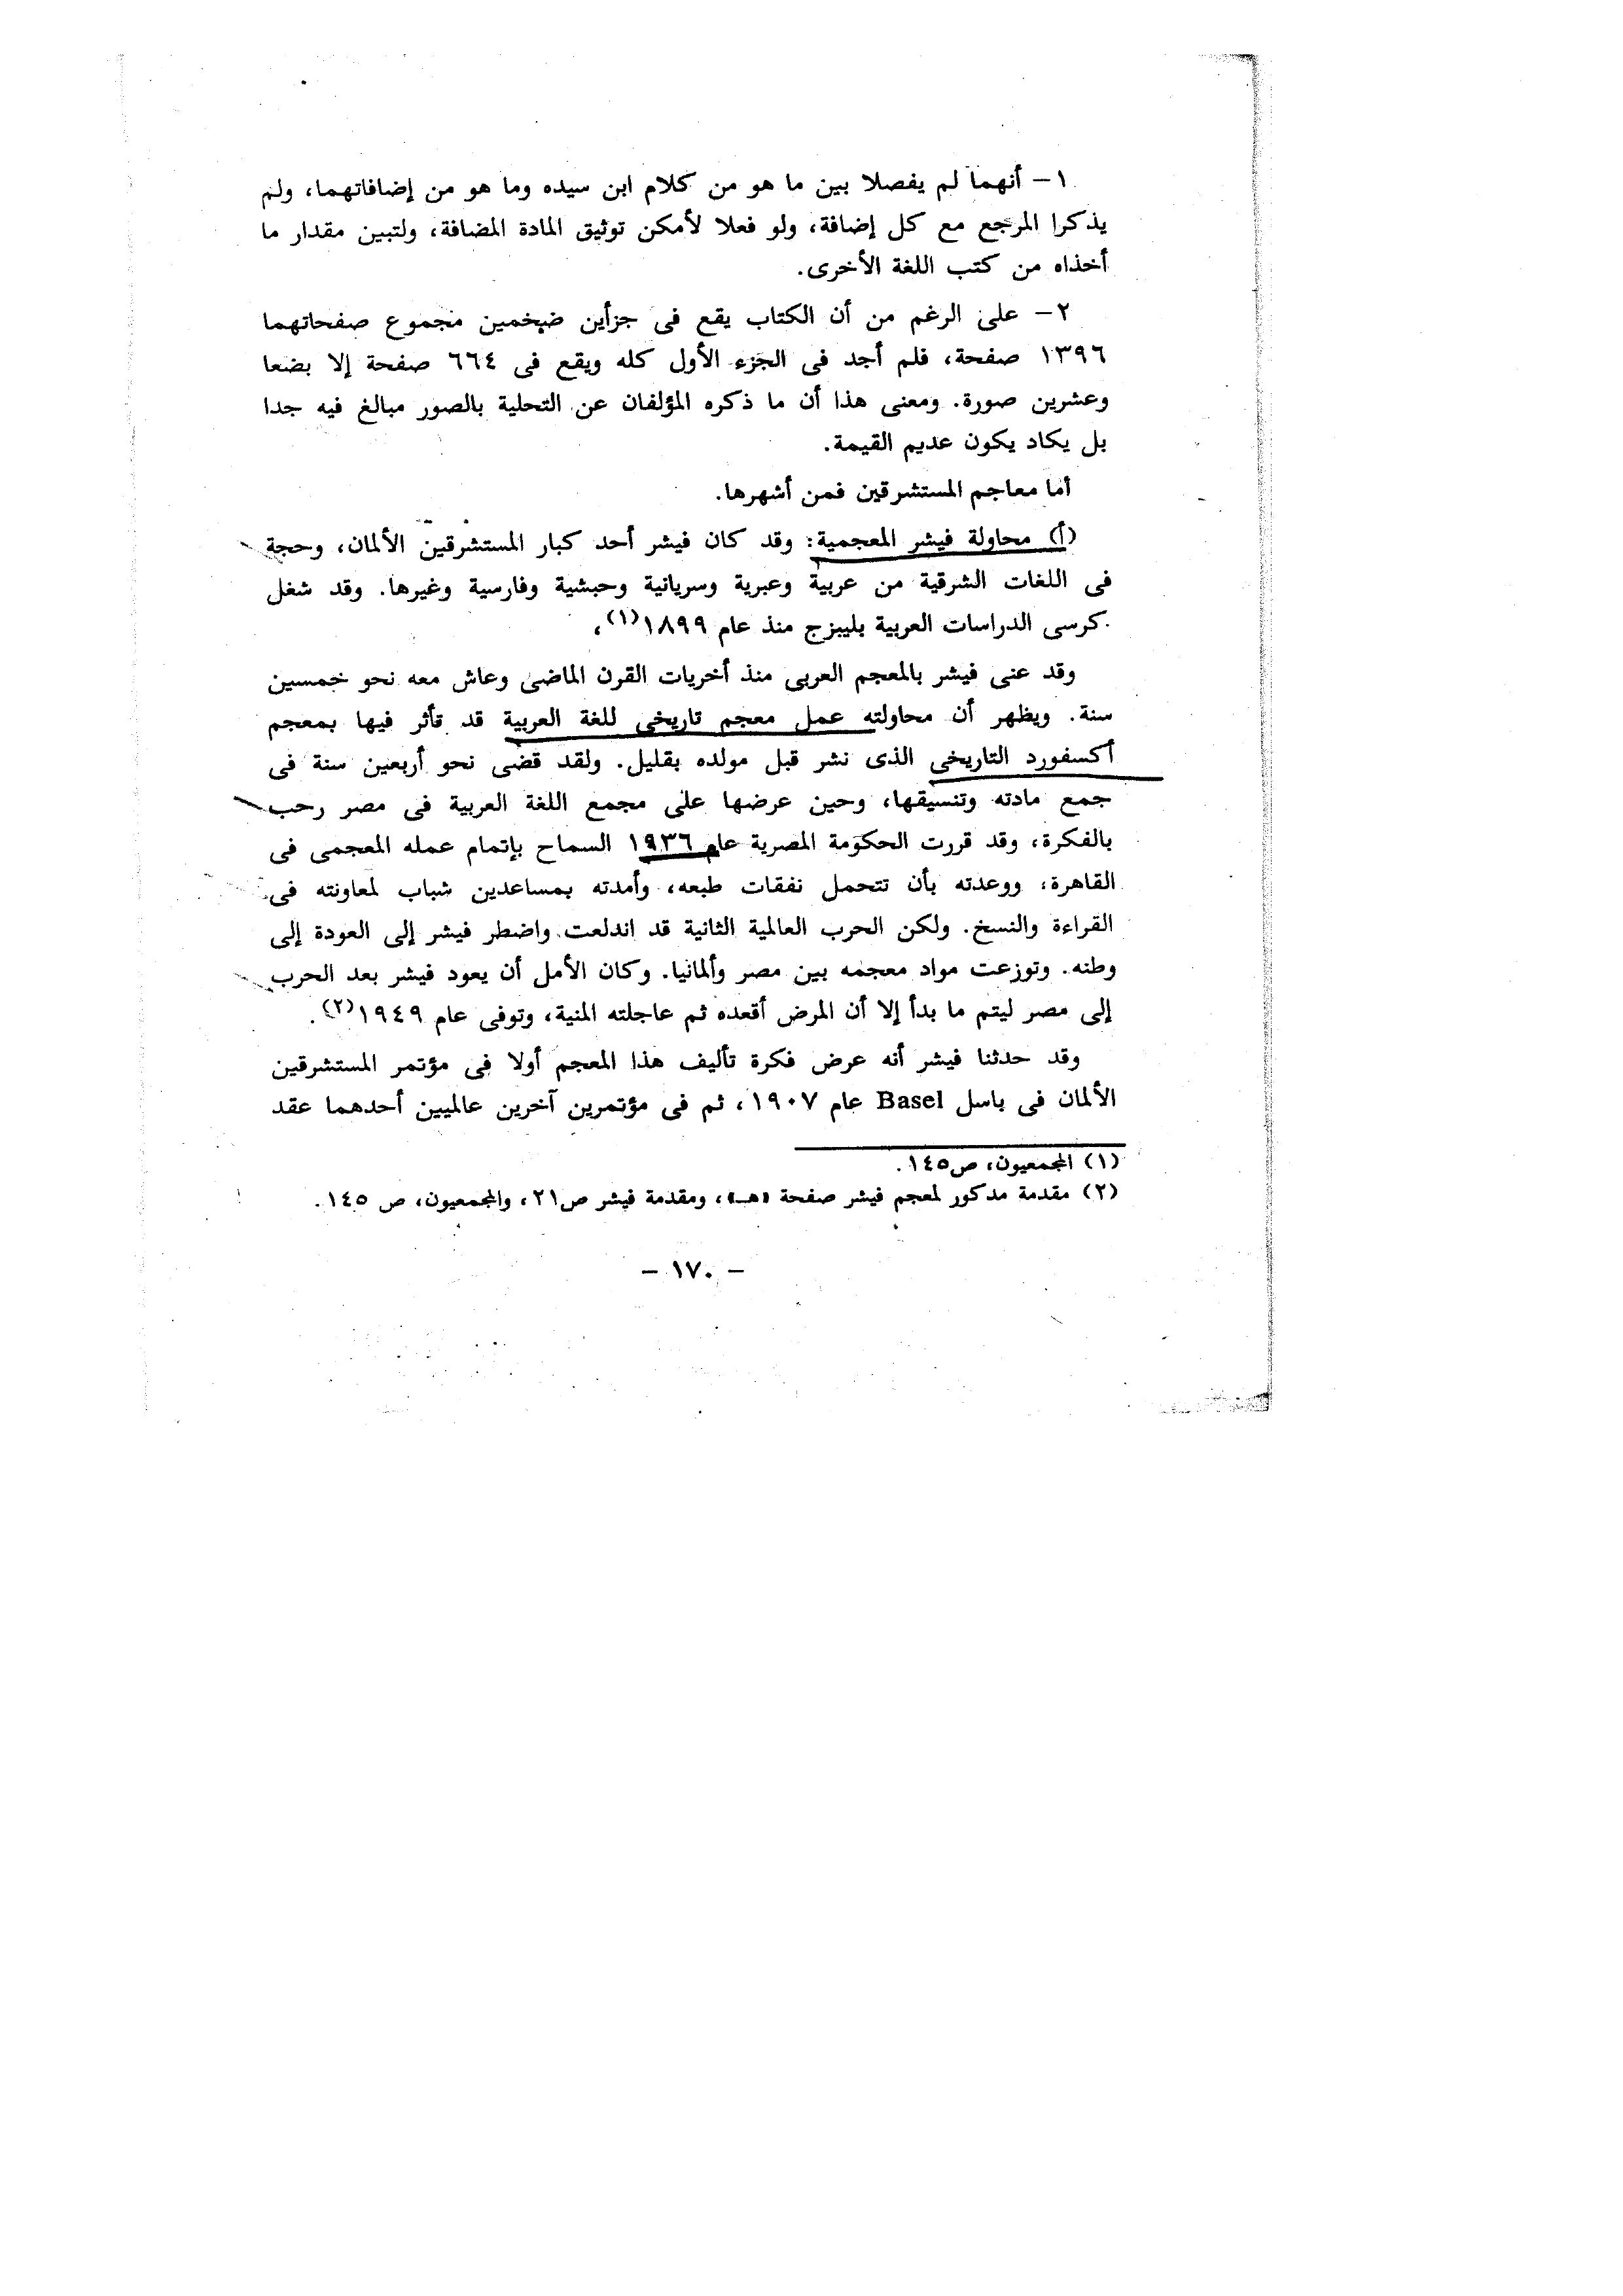 ١- أنهما لم يفصلا بين ما هو من كلام ابن سيده وما هو من إضافاتهما، ولم
يذكرا المرجع مع كل إضافة، ولو فعلا لأمكن توثيق المادة المضافة، ولتبين مقدار ما
أخذاه من كتب اللغة الأخرى.
٢- على الرغم من أن الكتاب يقع فى جزأين ضخمين مجموع صفحاتهما
١٣٩٦ صفحة، فلم أجد فى الجزء الأول كله ويقع فى ٦٦٤ صفحة إلا بضعا
وعشرين صورة. ومعنى هذا أن ما ذكره المؤلفان عن التحلية بالصور مبالغ فيه جدا
بل يكاد يكون عديم القيمة.
أما معاجم المستشرقين فمن أشهرها.
(أ) محاولة فيشر المعجمية: وقد كان فيشر أحد كبار المستشرقين الألمان، وحجة
فى اللغات الشرقية من عربية وعبرية وسريانية وحبشية وفارسية وغيرها. وقد شغل
كرسى الدراسات العربية بليبزج منذ عام ١٨٩٩(١)،
وقد عنى فيشر بالمعجم العربى منذ أخريات القرن الماضى وعاش معه نحو خمسين
سنة. ويظهر أن محاولته عمل معجم تاريخى للغة العربية قد تأثر فيها بمعجم
أكسفورد التاريخى الذى نشر قبل مولده بقليل. ولقد قضى نحو أربعين سنة فى
جمع مادته وتنسيقها، وحين عرضها على مجمع اللغة العربية فى مصر رحب
بالفكرة، وقد قررت الحكومة المصرية عام ١٩٣٦ السماح بإتمام عمله المعجمى فى
القاهرة، ووعدته بأن تتحمل نفقات طبعه، وأمدته بمساعدين شباب لمعاونته فى
القراءة والنسخ. ولكن الحرب العالمية الثانية قد اندلعت واضطر فيشر إلى العودة إلى
وطنه. وتوزعت مواد معجمه بين مصر وألمانيا. وكان الأمل أن يعود فيشر بعد الحرب
إلى مصر ليتم ما بدأ إلا أن المرض أقعده ثم عاجلته المنية، وتوفى عام ١٩٤٩(٢).
وقد حدثنا فيشر أنه عرض فكرة تأليف هذا المعجم أولا فى مؤتمر المستشرقين
الألمان فى باسل Basel عام ١٩٠٧، ثم فى مؤتمرين آخرين عالميين أحدهما عقد
(١) المجمعيون، ص١٤٥.
(٢) مقدمة مدكور لمعجم فيشر صفحة «هـ»، ومقدمة فيشر ص٢١، والمجمعيون، ص ١٤٥.
- ١٧٠ -